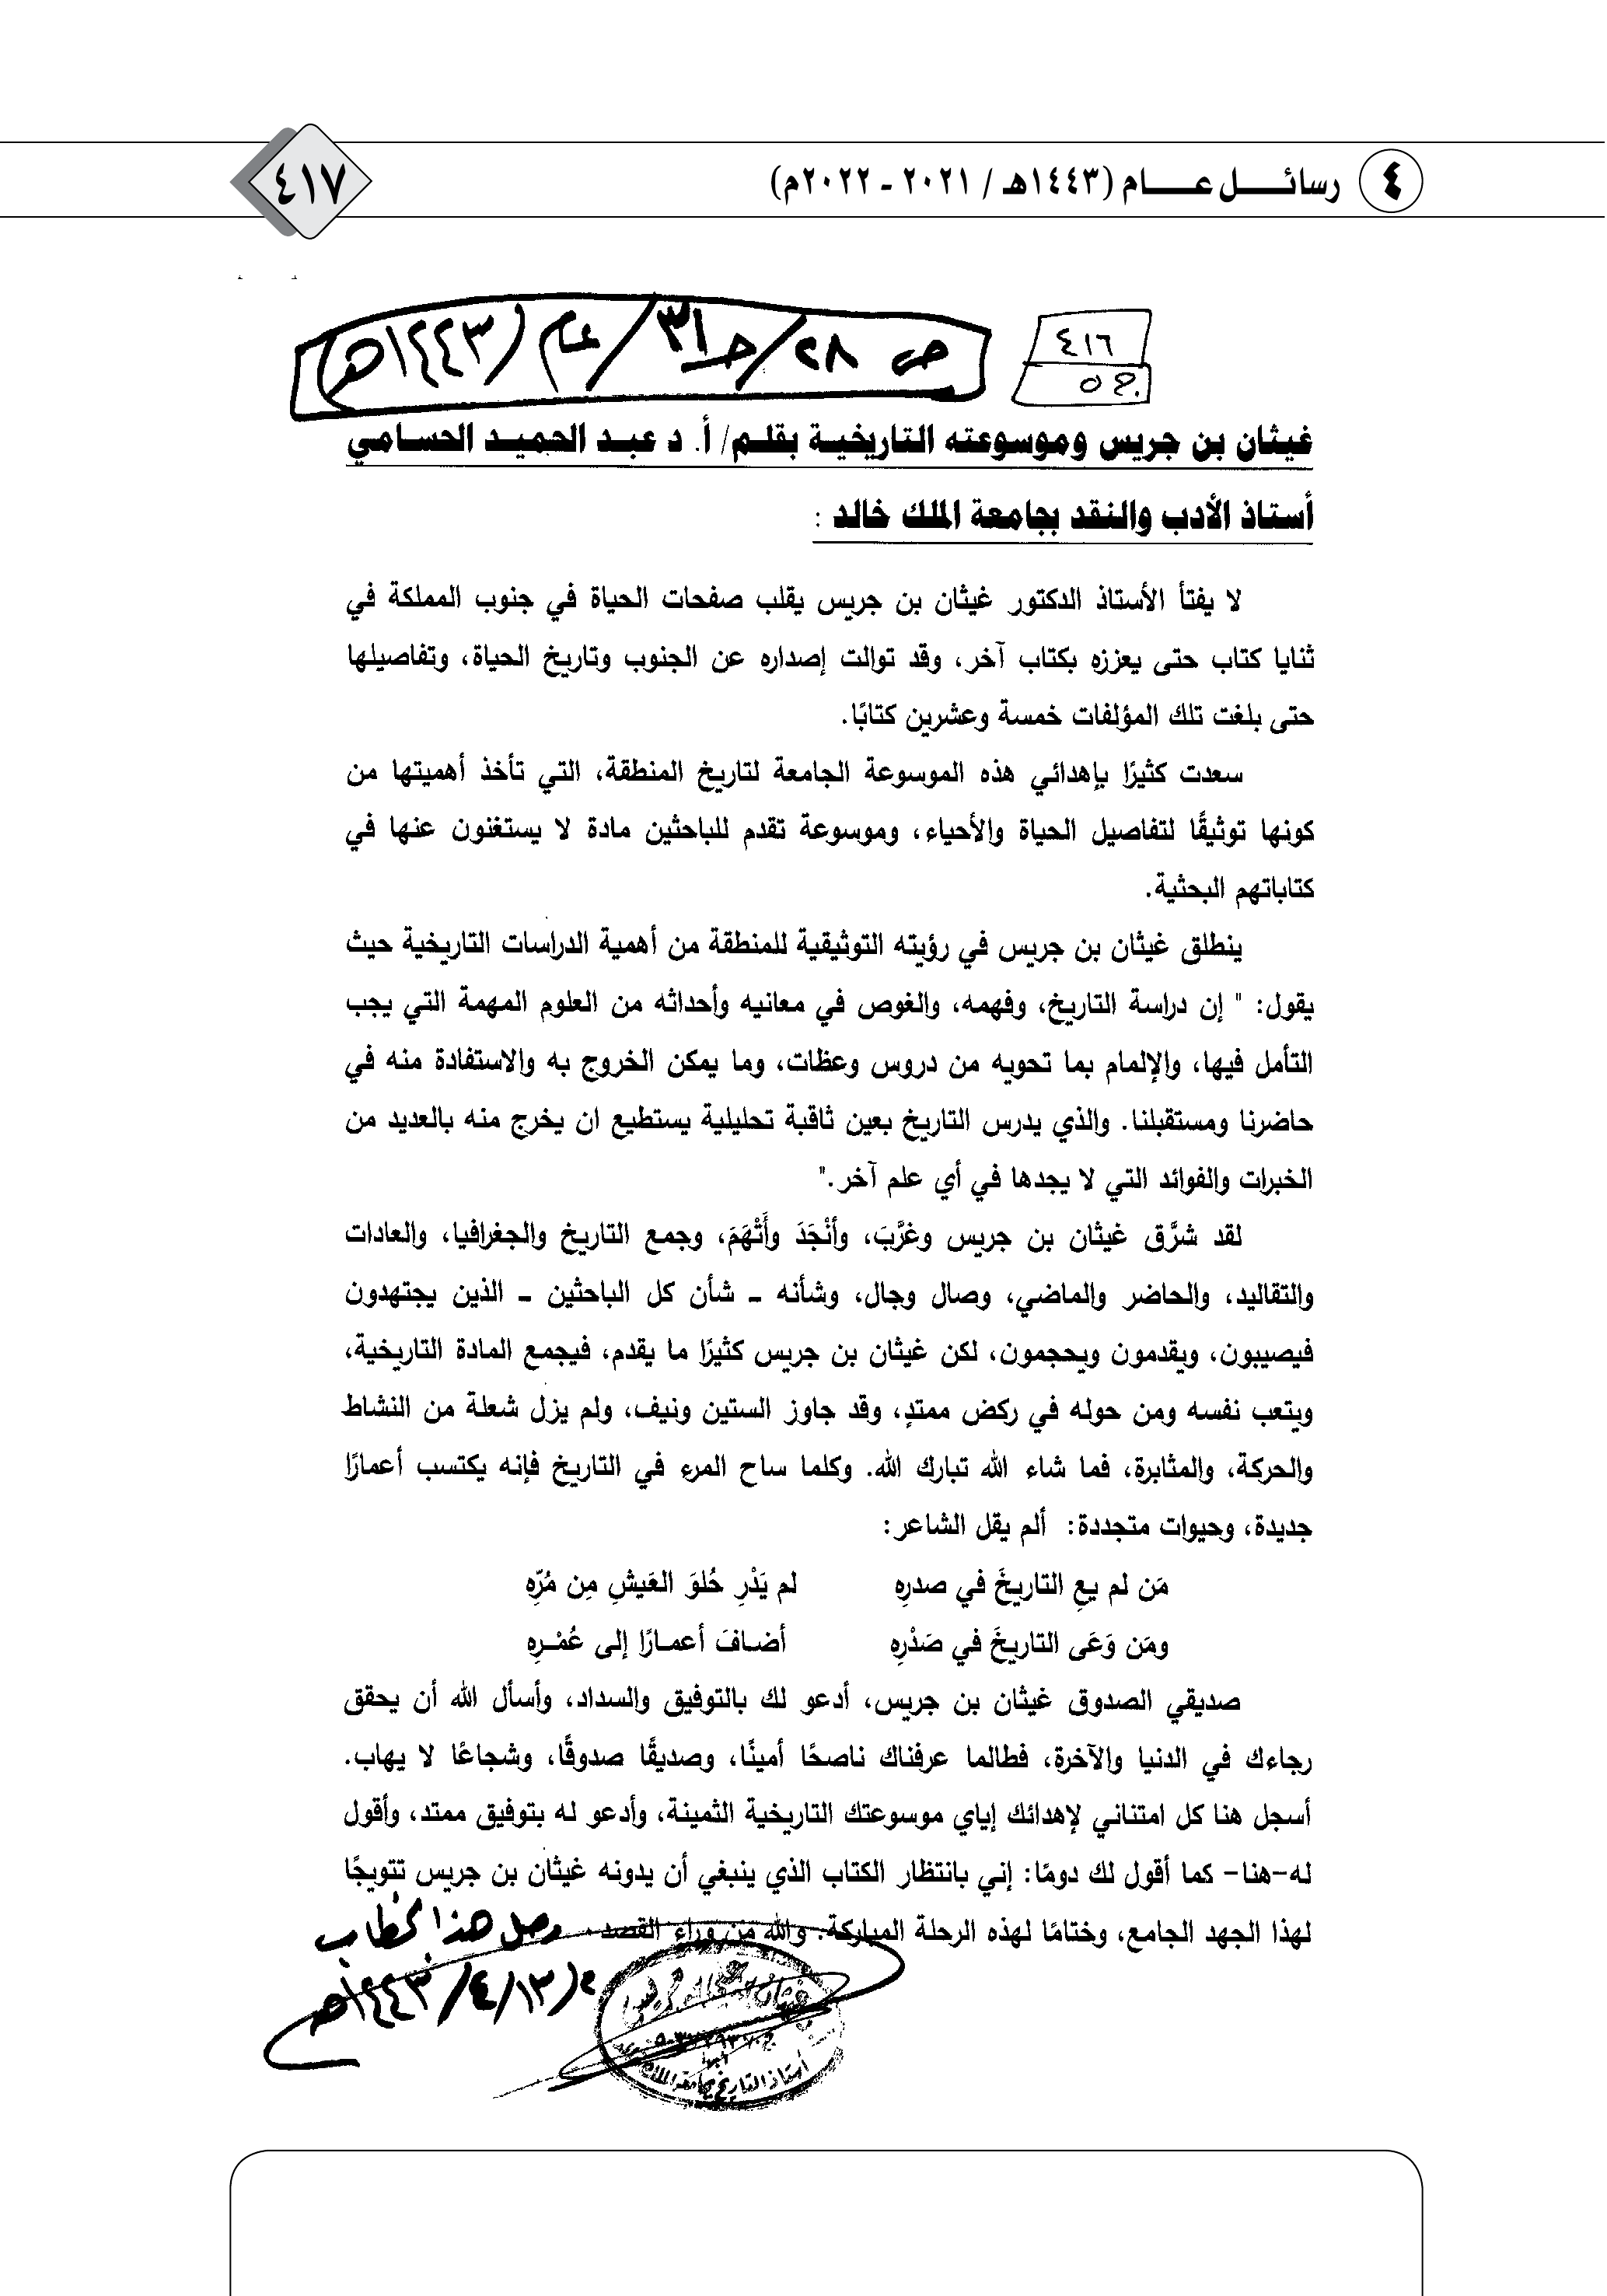 ٤ رسائـــــل عـــــام (١٤٤٣هـ / ٢٠٢١ - ٢٠٢٢م)
٤١٧
٤١٦
ص ٢٨/ جـ ٣١/ عام (١٤٤٣هـ)
غيثان بن جريس وموسوعته التاريخية بقلم/ أ. د عبد الحميد الحسامي
أستاذ الأدب والنقد بجامعة الملك خالد :
لا يفتأ الأستاذ الدكتور غيثان بن جريس يقلب صفحات الحياة في جنوب المملكة في
ثنايا كتاب حتى يعززه بكتاب آخر، وقد توالت إصداره عن الجنوب وتاريخ الحياة، وتفاصيلها
حتى بلغت تلك المؤلفات خمسة وعشرين كتابًا.
سعدت كثيرًا بإهدائي هذه الموسوعة الجامعة لتاريخ المنطقة، التي تأخذ أهميتها من
كونها توثيقًا لتفاصيل الحياة والأحياء، وموسوعة تقدم للباحثين مادة لا يستغنون عنها في
كتاباتهم البحثية.
ينطلق غيثان بن جريس في رؤيته التوثيقية للمنطقة من أهمية الدراسات التاريخية حيث
يقول: " إن دراسة التاريخ، وفهمه، والغوص في معانيه وأحداثه من العلوم المهمة التي يجب
التأمل فيها، والإلمام بما تحويه من دروس وعظات، وما يمكن الخروج به والاستفادة منه في
حاضرنا ومستقبلنا. والذي يدرس التاريخ بعين ثاقبة تحليلية يستطيع ان يخرج منه بالعديد من
الخبرات والفوائد التي لا يجدها في أي علم آخر."
لقد شرَّق غيثان بن جريس وغرَّبَ، وأنْجَدَ وأَتْهَمَ، وجمع التاريخ والجغرافيا، والعادات
والتقاليد، والحاضر والماضي، وصال وجال، وشأنه ـ شأن كل الباحثين ـ الذين يجتهدون
فيصيبون، ويقدمون ويحجمون، لكن غيثان بن جريس كثيرًا ما يقدم، فيجمع المادة التاريخية،
ويتعب نفسه ومن حوله في ركض ممتدٍ، وقد جاوز الستين ونيف، ولم يزل شعلة من النشاط
والحركة، والمثابرة، فما شاء الله تبارك الله. وكلما ساح المرء في التاريخ فإنه يكتسب أعمارًا
جديدة، وحيوات متجددة: ألم يقل الشاعر:
مَن لم يعِ التاريخَ في صدرِهِ لم يَدْرِ حُلوَ العَيشِ مِن مُرّهِ
ومَن وَعَى التاريخَ في صَدْرِهِ أضـافَ أعمـارًا إلى عُمْـرِهِ
صديقي الصدوق غيثان بن جريس، أدعو لك بالتوفيق والسداد، وأسأل الله أن يحقق
رجاءك في الدنيا والآخرة، فطالما عرفناك ناصحًا أمينًا، وصديقًا صدوقًا، وشجاعًا لا يهاب.
أسجل هنا كل امتناني لإهدائك إياي موسوعتك التاريخية الثمينة، وأدعو له بتوفيق ممتد، وأقول
له-هنا- كما أقول لك دومًا: إني بانتظار الكتاب الذي ينبغي أن يدونه غيثان بن جريس تتويجًا
لهذا الجهد الجامع، وختامًا لهذه الرحلة المباركة. والله من وراء القصد.
وصل هذا الخطاب
١٣/٤/١٤٤٣هـ
أستاذ التاريخ بجامعة الملك